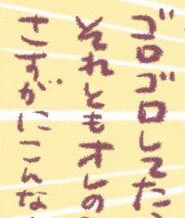 ゴロゴロしてた、
それともオレの
さすがにこんな